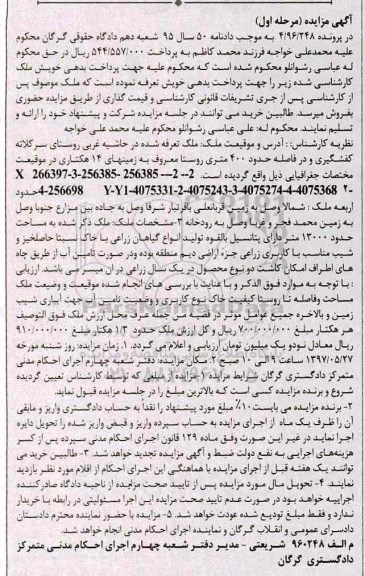 آگهی مزایده (مرحله اول)
در پرونده ۴/۹۶/۲۴۸ به موجب دادنامه ۵۰ سال ۹۵ شعبه دهم دادگاه حقوقی گرگان محکوم
علیه محمدعلی خواجه فرزند محمد کاظم به پرداخت ۵۴۴/۵۵۷/۰۰۰ ریال در حق محکوم
له عباسی رشوانلو محکوم شده است که محکوم علیه جهت پرداخت بدهی خویش ملک
کارشناسی شده زیر را جهت پرداخت بدهی خویش تعرفه نموده است که ملک موصوف پس
از کارشناسی پس از جری تشریفات قانونی کارشناسی و قیمت گذاری از طریق مزایده حضوری
بفروش میرسد. طالبین خرید می توانند در جلسه مزایده شرکت و پیشنهاد خود را ارائه و
تسلیم نمایند. محکوم له: علی عباسی رشوانلو محکوم علیه محمد علی خواجه
نظریه کارشناس: آدرس و موقعیت ملک: ملک تعرفه شده در حاشیه غربی روستای سرکلاته
کفشگیری و در فاصله حدود ۴۰۰ متری روستا معروف به زمینهای ۱۴ هکتاری در موقعیت
مختصات جغرافیایی ذیل واقع گردیده است. 2-- 2--- 256385 -256385-3-266397 X
۲- 4075368-4-4075274-3-4075243-2-4075331-Y-Y1 256698-4حدود
اربعه ملک: شمالا وصل به زمین قربانعلی باقرتبار شرقا وصل به جاده بین مزارع جنوبا وصل
به زمین محمد فجر و غربا وصل به رودخانه ۳-مشخصات ملک: ملک ذکر شده به مساحت
حدود ۱۳۰۰۰ متر دارای پتانسیل بالقوه تولید انواع گیاهان زراعی با خاک نسبتا حاصلخیز و
شیب مناسب با کاربری زراعی جزء اراضی دیم منطقه بوده ودر صورت تامین آب از طریق چاه
های اطراف امکان کاشت دو نوع محصول در یک سال زراعی در ان میسر می باشد. ارزیابی
: با توجه به موارد فوق الذکر و با عنایت با بررسی های انجام شده موقعیت و وضعیت ملک
مساحت وفاصله تا روستا کیفیت خاک نوع کاربری و وضعیت تامین آب جهت آبیاری شیب
زمین و بالاخره جمیع عوامل موثر در قضیه من جمله خاک محل ارزش ملک فوق التوصیف
هر هکتار مبلغ ۷۰۰/۰۰۰/۰۰۰ ریال و کل ارزش ملک حدود ۱/۳ هکتار مبلغ ۹۱۰/۰۰۰/۰۰۰
ریال معادل نود و یک میلیون تومان ارزیابی و اعلام می گردد. ۱. زمان مزایده: روز شنبه مورخه
۱۳۹۷/۰۵/۲۷ ساعت ۹ الی ۱۰ صبح ۲. مکان مزایده: دفتر شعبه چهارم اجرای احکام مدنی
متمرکز دادگستری گرگان شرایط مزایده: ۱- مبلغی که توسط کارشناس تعیین گردیده
شروع و برنده مزایده کسی است که بالاترین مبلغ را در جلسه مزایده قبول نماید.
۲- برنده مزایده می بایست ۱۰٪ مبلغ مورد پیشنهاد را نقدا به حساب دادگستری واریز و مابقی
آن را ظرف یک ماه از اجرای مزایده به حساب سپرده واریز و قبض واریز شده را تحویل دایره
اجرا نماید در غیر این صورت وفق ماده ۱۲۹ قانون اجرای احکام مدنی سپرده پس از کسر
هزینه‌های اجرایی به نفع دولت ضبط و آگهی مزایده تجدید خواهد شد. ۳- طالبین خرید می
توانند یک هفته قبل از اجرای مزایده با هماهنگی این اجرای احکام از اقلام مورد نظر بازدید
نمایند. ۴- تحویل مال مورد مزایده پس از تایید صحت مزایده از ناحیه دادگاه صادرکننده
اجراییه خواهد بود در صورت عدم تایید صحت مزایده این اجرا مسئولیتی در رابطه با خریدار
ندارد و فقط مبلغ تودیع شده عودت خواهد شد. ۵- مزایده با حضور نماینده محترم دادستان
دادسرای عمومی و انقلاب گرگان و نماینده اجرای احکام مدنی انجام خواهد شد.
م الف ۹۶۰۲۴۸ شریعتی - مدیر دفتر شعبه چهارم اجرای احکام مدنی متمرکز
دادگستری گرگان